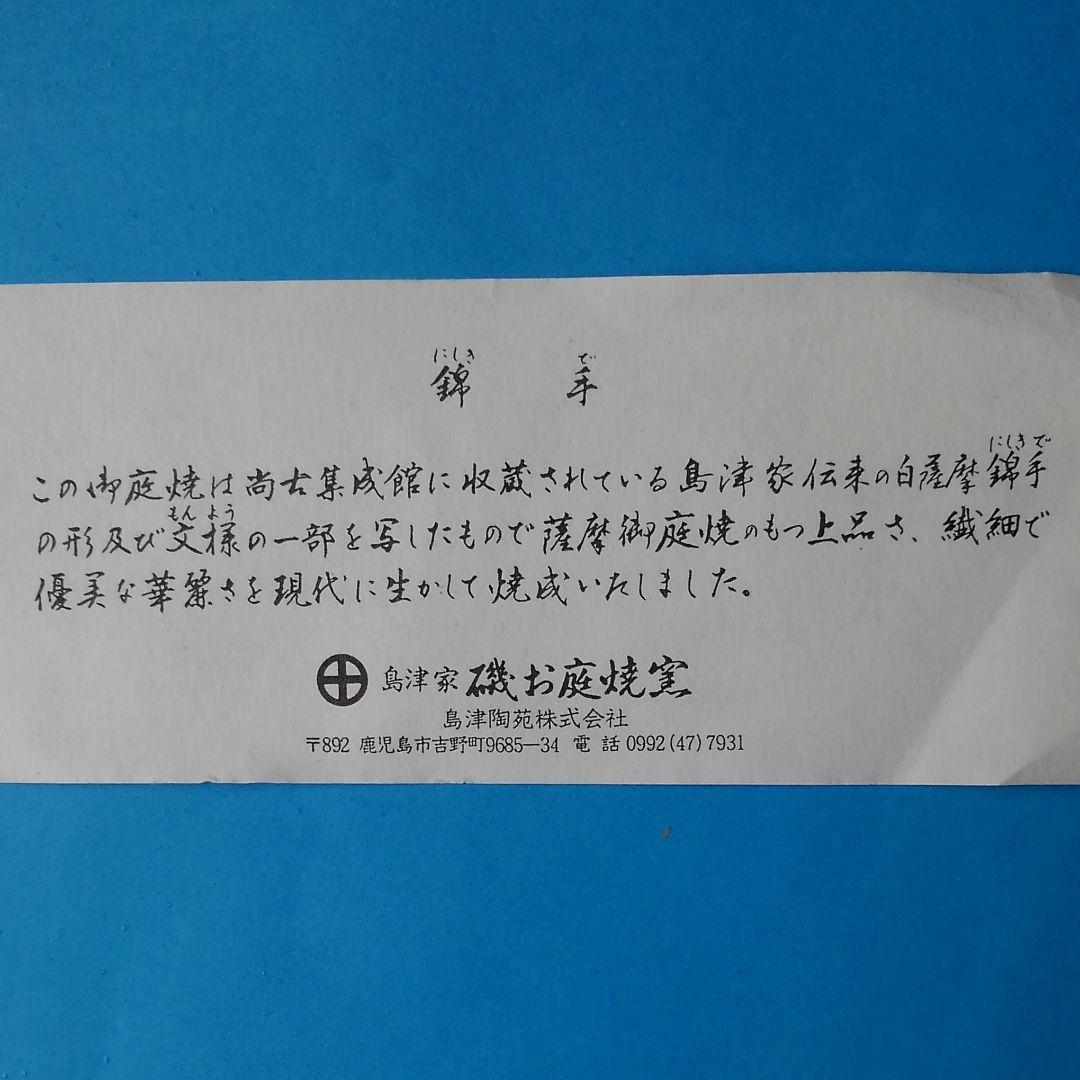 にしき で
錦 手
にしきで
この御庭焼は尚古集成館に収蔵されている島津家伝来の白薩摩錦手
もんよう
の形及び文様の一部を写したもので薩摩御庭焼のもつ上品さ、繊細で
優美な華麗さを現代に生かして焼成いたしました。
島津家 磯お庭焼窯
島津陶苑株式会社
〒892 鹿児島市吉野町9685—34 電話0992(47)7931